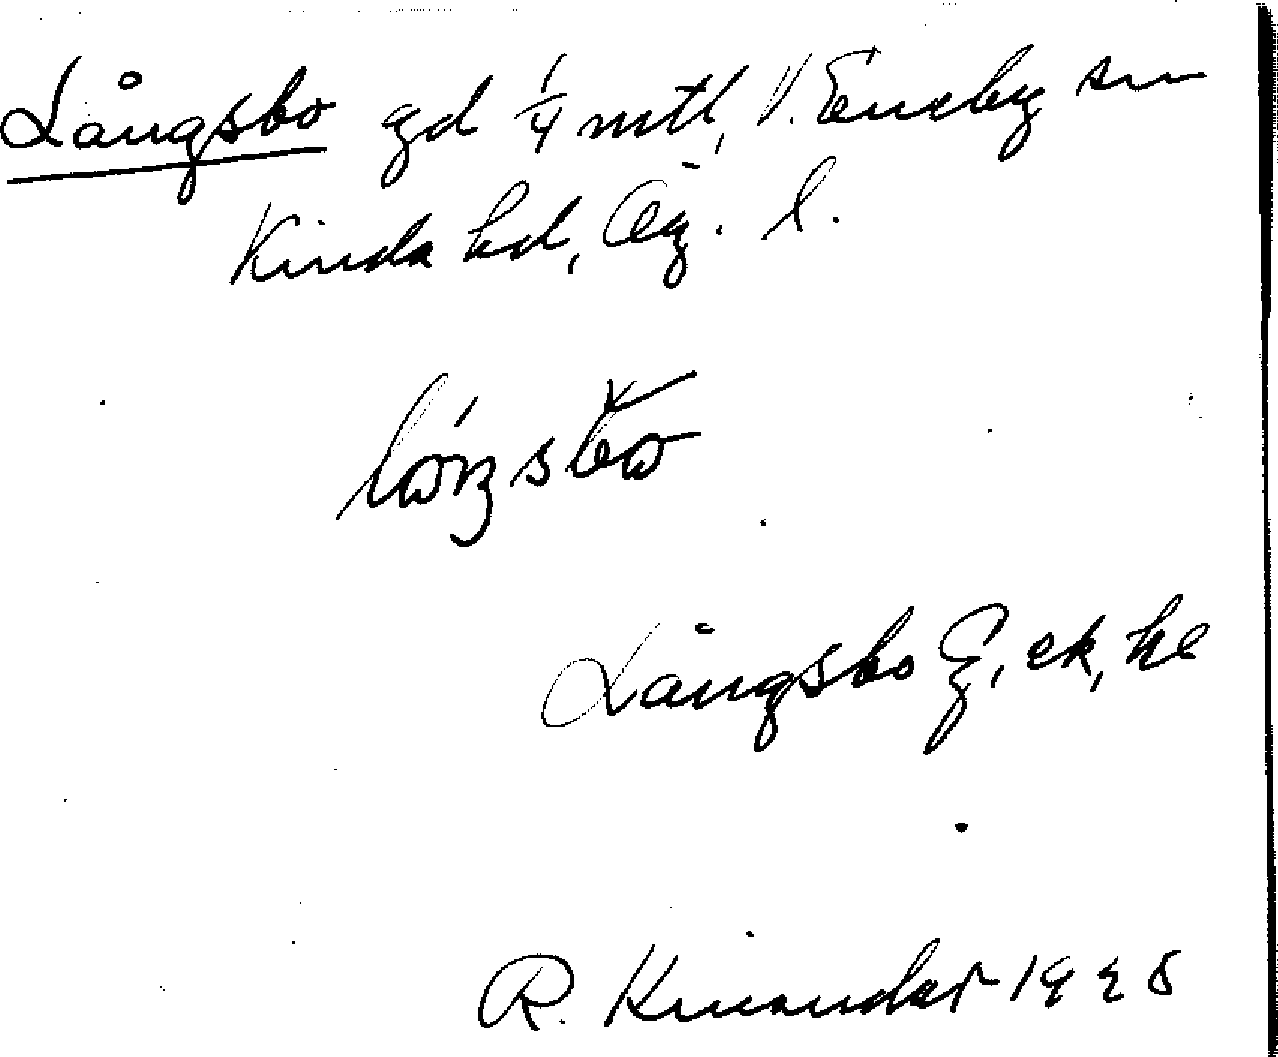 Långsbo gd 1/4 mtl, V. Eneby sn
Kinda hd, Ög. l.
Långsbo g, ek, he
R. Kinander 1928